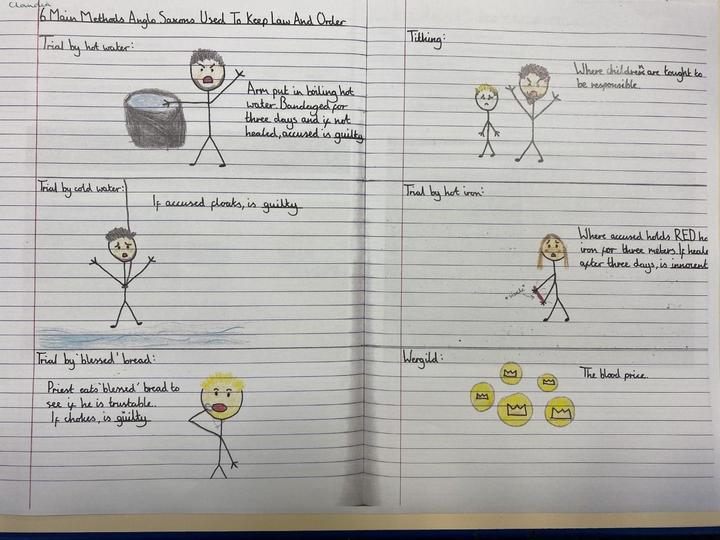 Claudia
6 Main Methods Anglo Saxons Used To Keep Law And Order
Trial by hot water:
Arm put in boiling hot
water. Bandaged for
three days and if not
healed, accused is guilty
Trial by cold water:
If accused floats, is guilty
Trial by 'blessed' bread:
Priest eats 'blessed' bread to
see if he is trustable.
If chokes, is guilty
Tithing:
Where children are tought to
be responsible.
Trial by hot iron:
Where accused holds RED ho
iron for three meters. If heale
after three days, is innocent
Wergild:
The blood price.